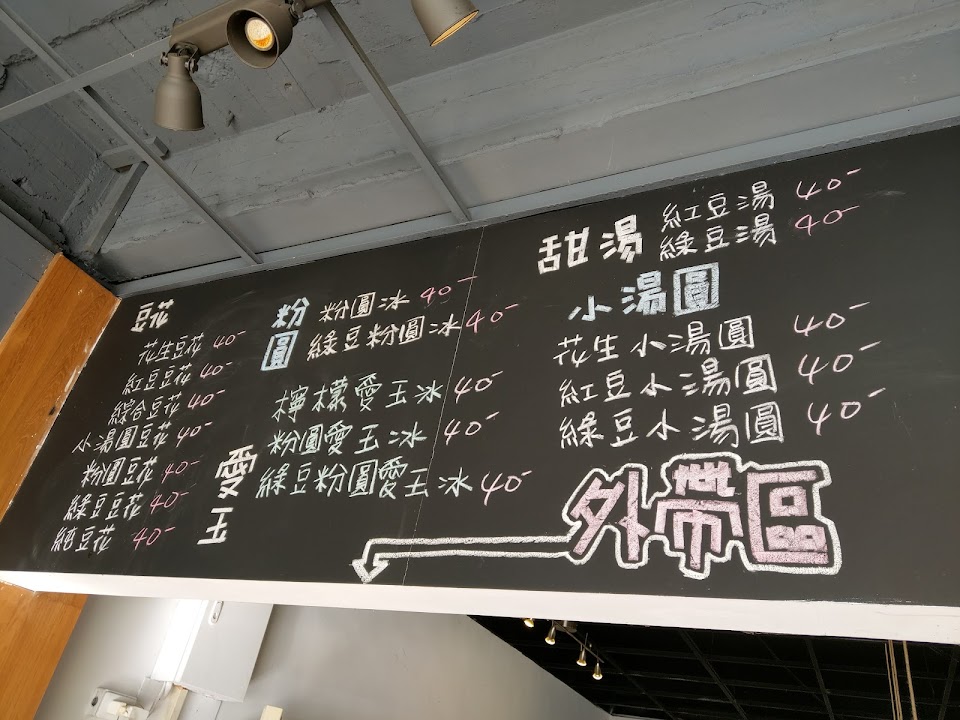 豆花
花生豆花 40-
紅豆豆花 40-
綜合豆花 40-
小湯圓豆花 40-
粉圓豆花 40-
綠豆豆花 40-
純豆花 40-
粉圓
粉圓冰 40-
綠豆粉圓冰 40-
愛玉
檸檬愛玉冰 40-
粉圓愛玉冰 40-
綠豆粉圓愛玉冰 40-
甜湯
紅豆湯 40-
綠豆湯 40-
小湯圓
花生小湯圓 40-
紅豆小湯圓 40-
綠豆小湯圓 40-
外帶區